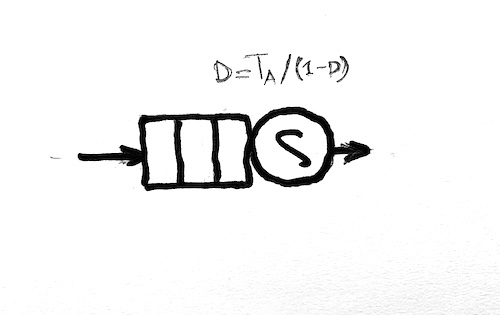 D=TA/(1-D)
S